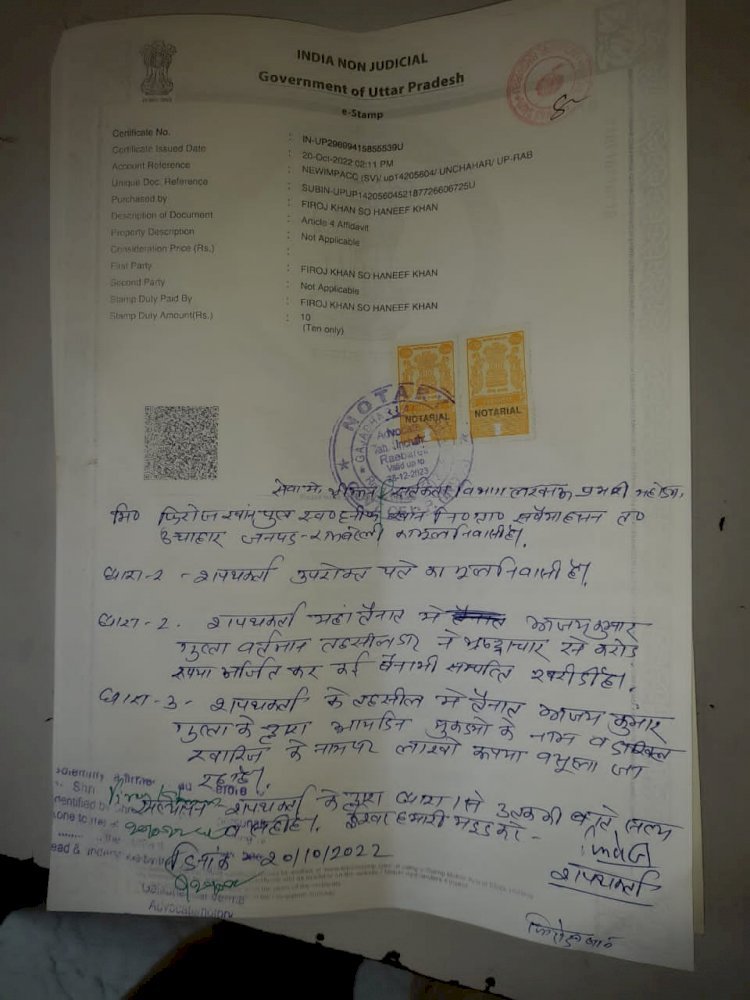 INDIA NON JUDICIAL
Government of Uttar Pradesh
e-Stamp
Certificate No. : IN-UP29699415855539U
Certificate Issued Date : 20-Oct-2022 02:11 PM
Account Reference : NEWIMPACC (SV)/ up14205604/ UNCHAHAR/ UP-RAB
Unique Doc. Reference : SUBIN-UPUP1420560452187726606725U
Purchased by : FIROJ KHAN SO HANEEF KHAN
Description of Document : Article 4 Affidavit
Property Description : Not Applicable
Consideration Price (Rs.) :
First Party : FIROJ KHAN SO HANEEF KHAN
Second Party : Not Applicable
Stamp Duty Paid By : FIROJ KHAN SO HANEEF KHAN
Stamp Duty Amount(Rs.) : 10
(Ten only)
NOTARIAL
NOTARIAL
NOTARY
Raebareli
Valid up to
-12-2023
सेवा मे, श्रीमान विभाग लखनऊ महोदय,
फिरोज खान पुत्र स्व० हनीफ खान नि० ग्रा० त०
ऊंचाहार जनपद - रायबरेली का मूल निवासी है।
धारा-१ - शपथकर्ता उपरोक्त पते का मूल निवासी है।
धारा-2. शपथकर्ता यहां तैनात मे अजय कुमार
गुप्ता वर्तमान तहसीलदार ने भ्रष्टाचार से करोड़
रुपया अर्जित कर कई बेनामी सम्पत्ति खरीदी है।
धारा-3- शपथकर्ता के तहसील मे तैनात अजय कुमार
गुप्ता के द्वारा आयेदिन मुकदमो के नाम व दाखिल
खारिज के नाम पर लाखो रूपया वसूला जा
रहा है।
शपथकर्ता के द्वारा धारा 1 से बाते सत्य
व सही है। हमारी मदद करे -
दिनांक 20/10/2022
शपथकर्ता